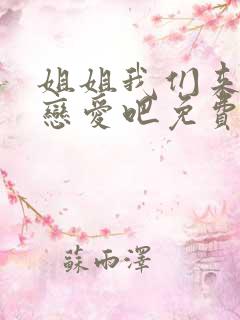 姐姐我们来
戀愛吧免費
蘇雨澤